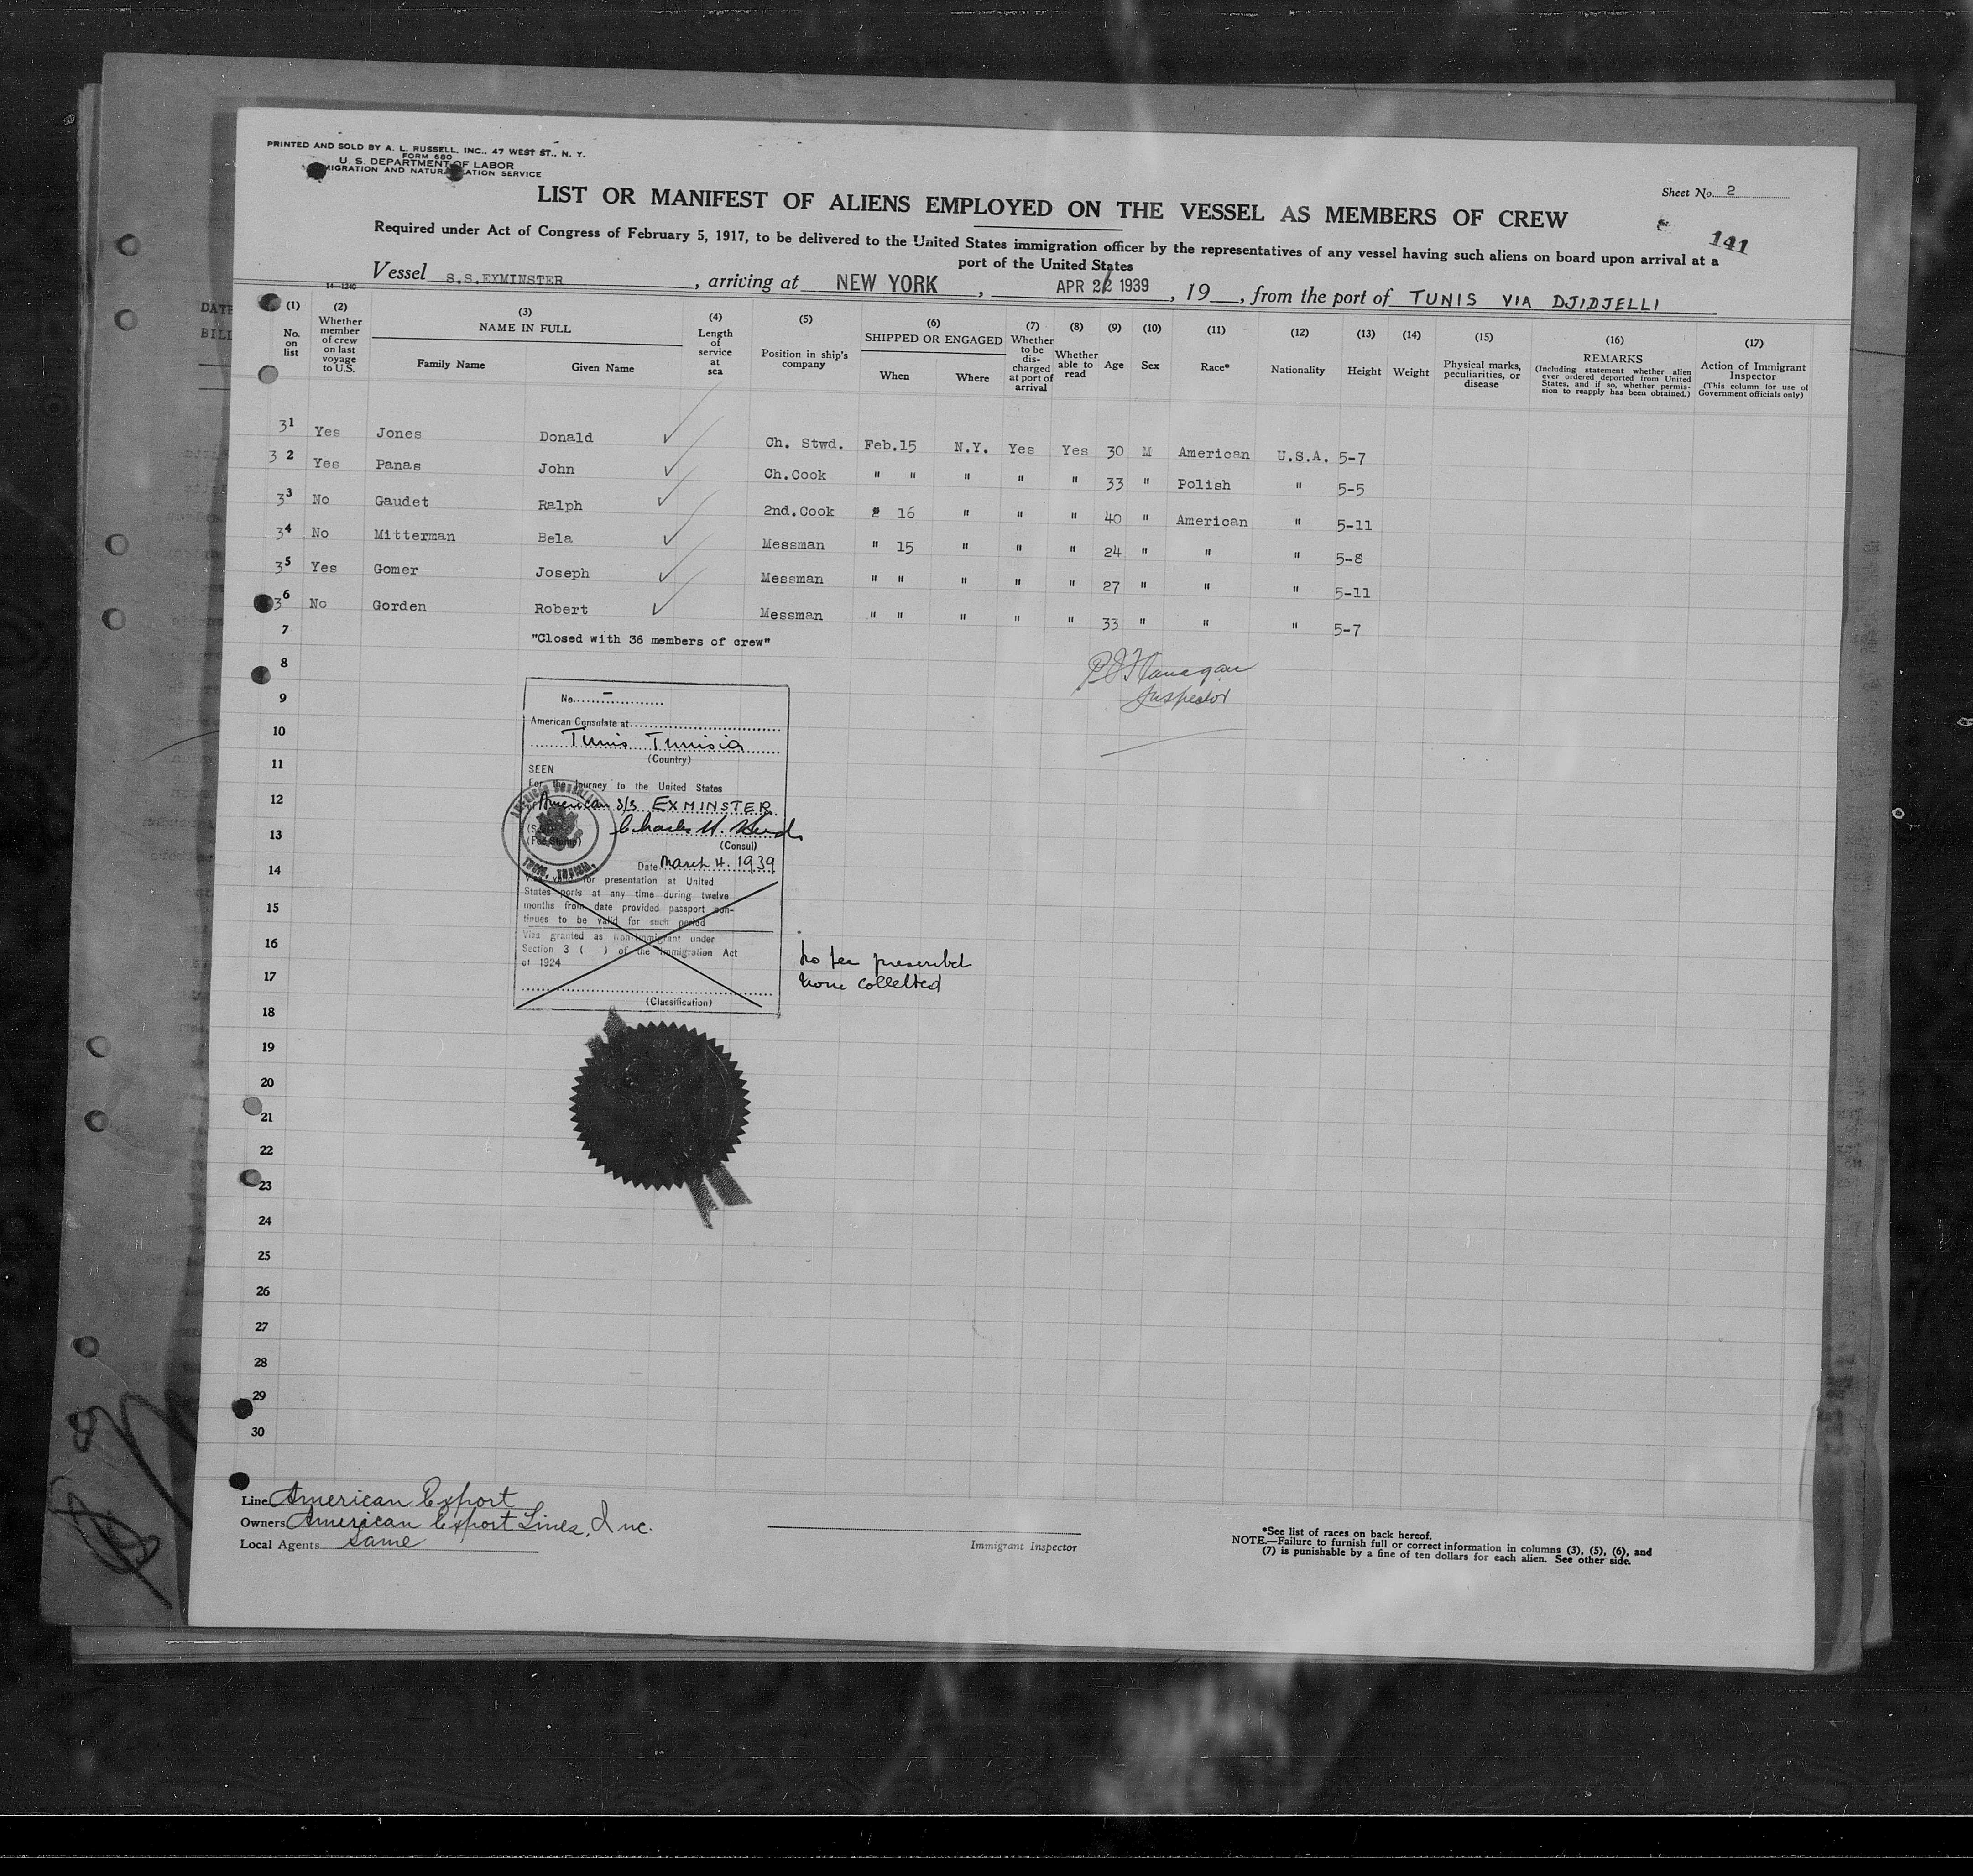 PRINTED AND SOLD BY A. L. RUSSELL, INC., 47 WEST ST., N. Y.
FORM 680
U. S. DEPARTMENT OF LABOR
MIGRATION AND NATURALIZATION SERVICE
Sheet No. 2
LIST OR MANIFEST OF ALIENS EMPLOYED ON THE VESSEL AS MEMBERS OF CREW
141
Required under Act of Congress of February 5, 1917, to be delivered to the United States immigration officer by the representatives of any vessel having such aliens on board upon arrival at a
port of the United States
Vessel S.S.EXMINSTER, arriving at NEW YORK, APR 22 1939, 19__, from the port of TUNIS VIA DJIDJELLI
14—1240
(1) No. on list
(2) Whether member of crew on last voyage to U.S.
(3) NAME IN FULL
Family Name Given Name
(4) Length of service at sea
(5) Position in ship's company
(6) SHIPPED OR ENGAGED
When Where
(7) Whether to be discharged at port of arrival
(8) Whether able to read
(9) Age
(10) Sex
(11) Race*
(12) Nationality
(13) Height
(14) Weight
(15) Physical marks, peculiarities, or disease
(16) REMARKS
(Including statement whether alien ever ordered deported from United States, and if so, whether permission to reapply has been obtained.)
(17) Action of Immigrant Inspector
(This column for use of Government officials only)
31 Yes Jones Donald ✓ Ch. Stwd. Feb.15 N.Y. Yes Yes 30 M American U.S.A. 5-7
32 Yes Panas John ✓ Ch.Cook " " " " " 33 " Polish " 5-5
33 No Gaudet Ralph ✓ 2nd.Cook " 16 " " " 40 " American " 5-11
34 No Mitterman Bela ✓ Messman " 15 " " " 24 " " " 5-8
35 Yes Gomer Joseph ✓ Messman " " " " " 27 " " " 5-11
36 No Gorden Robert ✓ Messman " " " " " 33 " " " 5-7
7 "Closed with 36 members of crew"
8
P J Flanagan
Inspector
9
10
11
12
13
14
15
16
17
18
19
20
21
22
23
24
25
26
27
28
29
30
No. –
American Consulate at
Tunis Tunisia
(Country)
SEEN
For the journey to the United States
American S/S EXMINSTER
Charles H.
(Consul)
(Fee Stamp)
Date March 4. 1939
Visa valid for presentation at United
States ports at any time during twelve
months from date provided passport con-
tinues to be valid for such period
Visa granted as Non-Immigrant under
Section 3 ( ) of the Immigration Act
of 1924
(Classification)
AMERICAN CONSULATE
TUNIS, TUNISIA.
No fee prescribed
none collected
Line American Export
Owners American Export Lines, Inc.
Local Agents same
Immigrant Inspector
*See list of races on back hereof.
NOTE.—Failure to furnish full or correct information in columns (3), (5), (6), and
(7) is punishable by a fine of ten dollars for each alien. See other side.
DATE
BILL